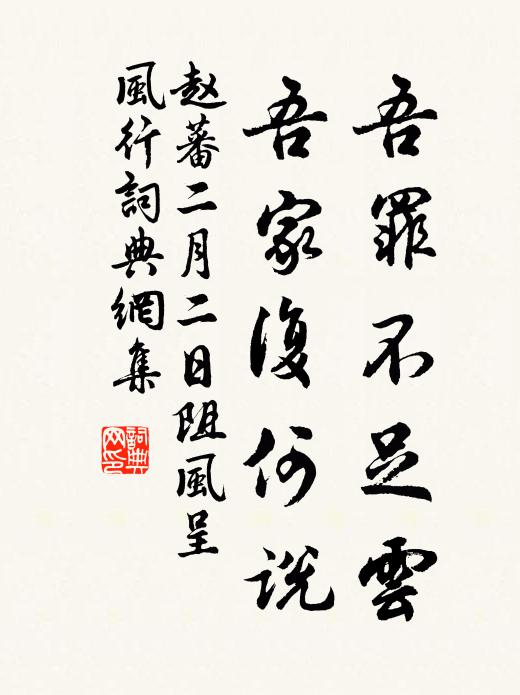 吾罪不足雲
吾家復何說
赵蕃二月二日阻風呈
風行詞典網集
詞典网印